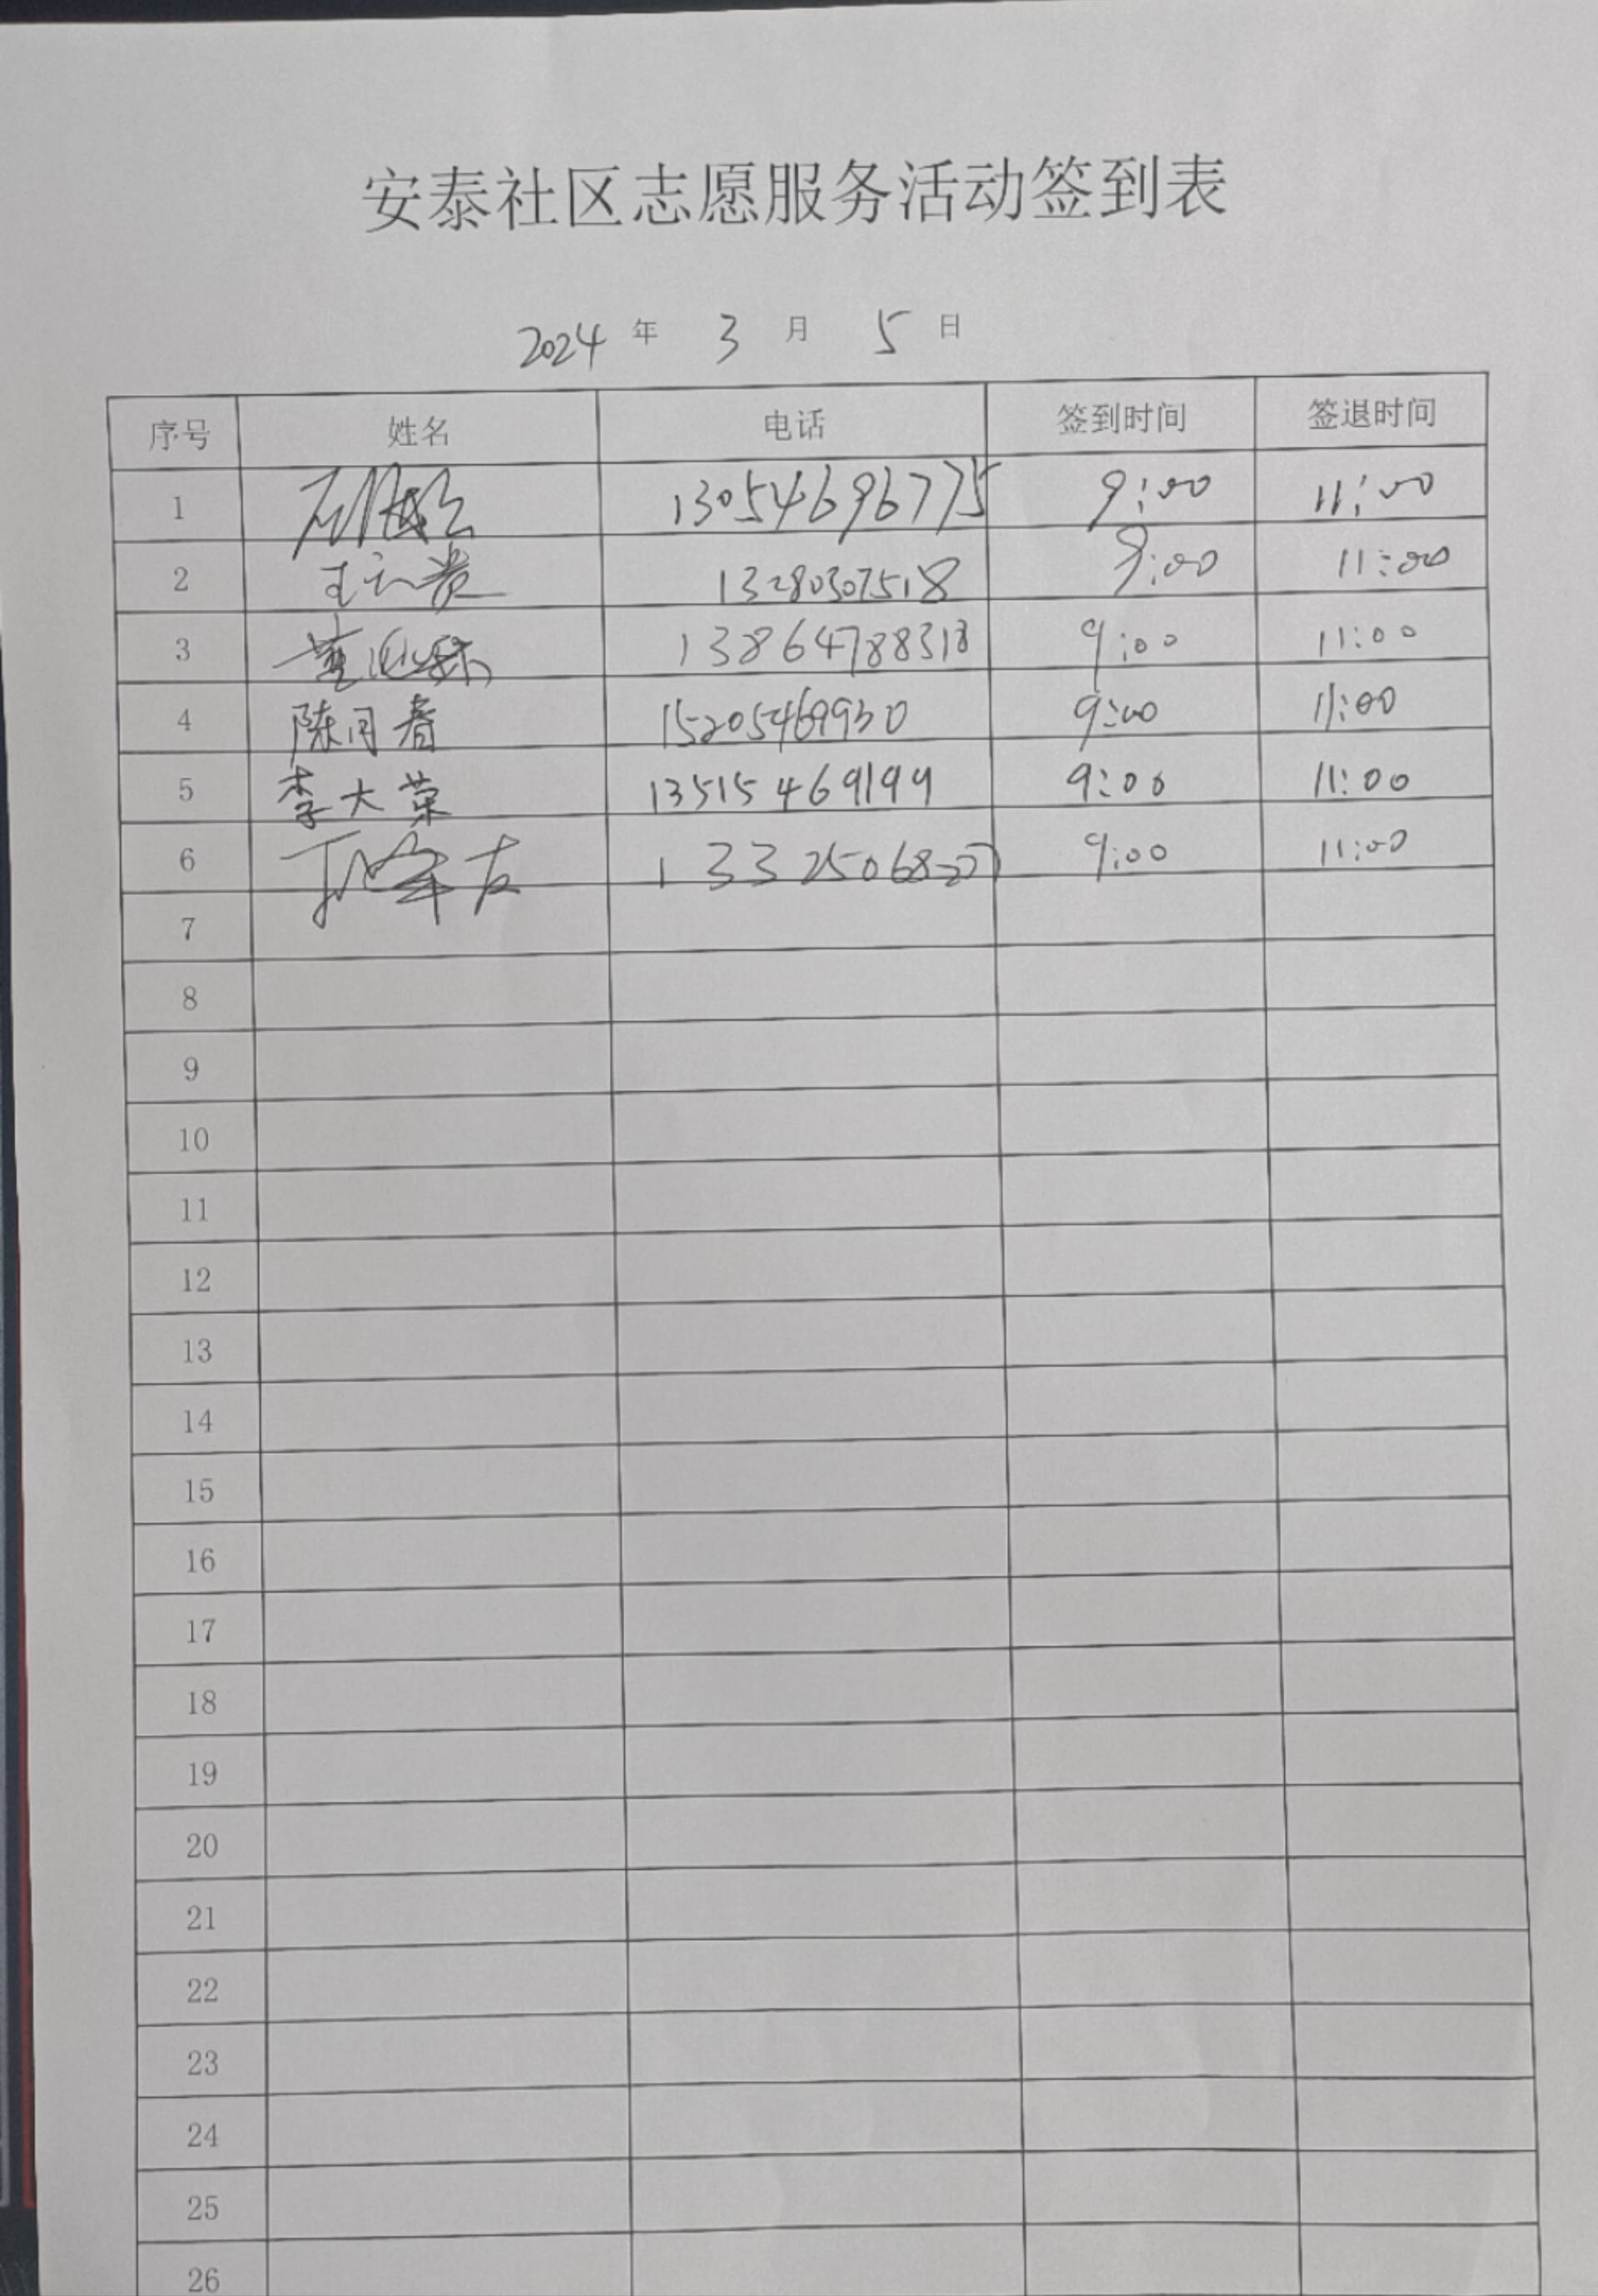 安泰社区志愿服务活动签到表
2024 年 3 月 5 日
序号 姓名 电话 签到时间 签退时间
1 13054696775 9:00 11:00
2 王云贵 13280307518 9:00 11:00
3 董 13864788318 9:00 11:00
4 陈同春 15205469930 9:00 11:00
5 李大荣 13515469199 9:00 11:00
6 孙峰友 9:00 11:00
7
8
9
10
11
12
13
14
15
16
17
18
19
20
21
22
23
24
25
26